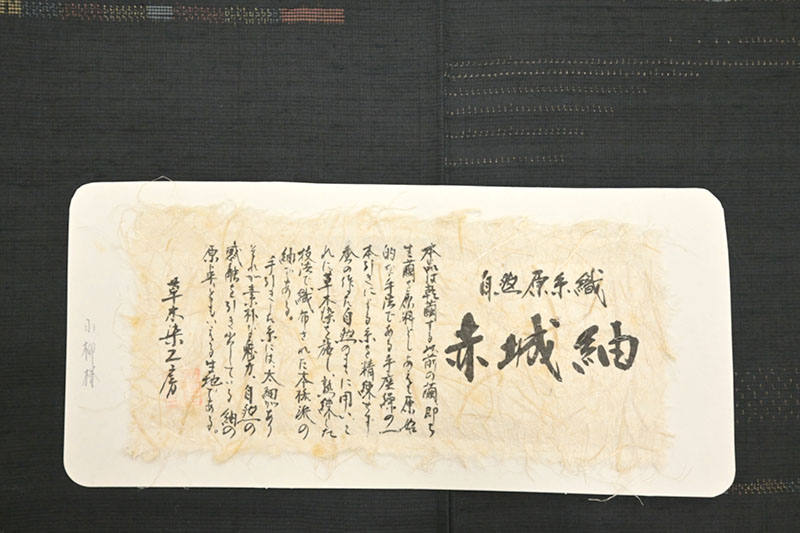 自然原糸織
赤城紬
本品は乾繭する以前の繭即ち
生繭を原料としあくまで原始
的な手法である手座操の一
本引きにする糸を精練せず
蚕の作た自然のまゝに用いこ
れに草木染を施し熟練した
技法で織布された本格派の
紬である。
手引きした糸には、太細があり
それが素朴な魅力、自然の
感触を引き出している紬の
原点ともいえる生地である。
草木染工房
小柳様